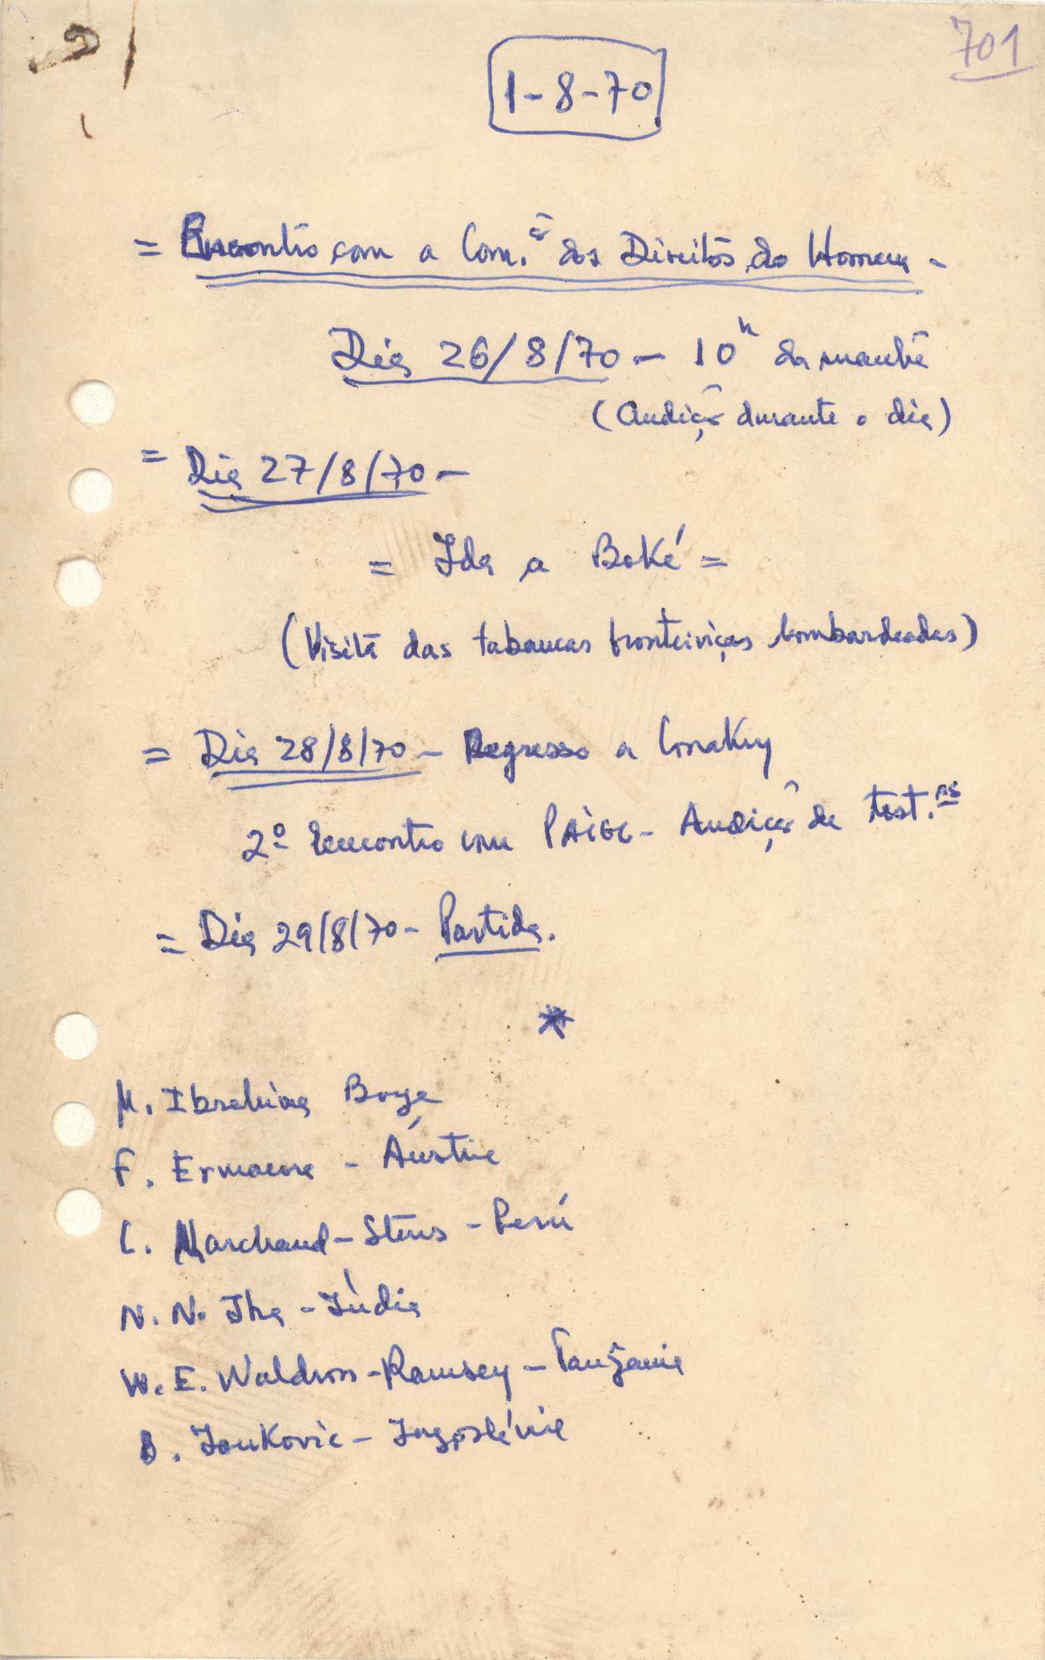 701
1-8-70
= Encontro com a Com.ão dos Direitos do Homem -
Dia 26/8/70 - 10h da manhã
(Audição durante o dia)
= Dia 27/8/70 -
= Ida a Boké =
(Visita das tabancas fronteiriças bombardeadas)
= Dia 28/8/70 - Regresso a Conakry
2º Encontro com PAIGC - Audição de test.as
= Dia 29/8/70 - Partida.
*
M. Ibrahima Boye
F. Ermacora - Áustria
L. Marchand-Stens - Perú
N. N. Jha - Índia
W. E. Waldron-Ramsey - Tanzania
B. Joukovic - Jugoslávia